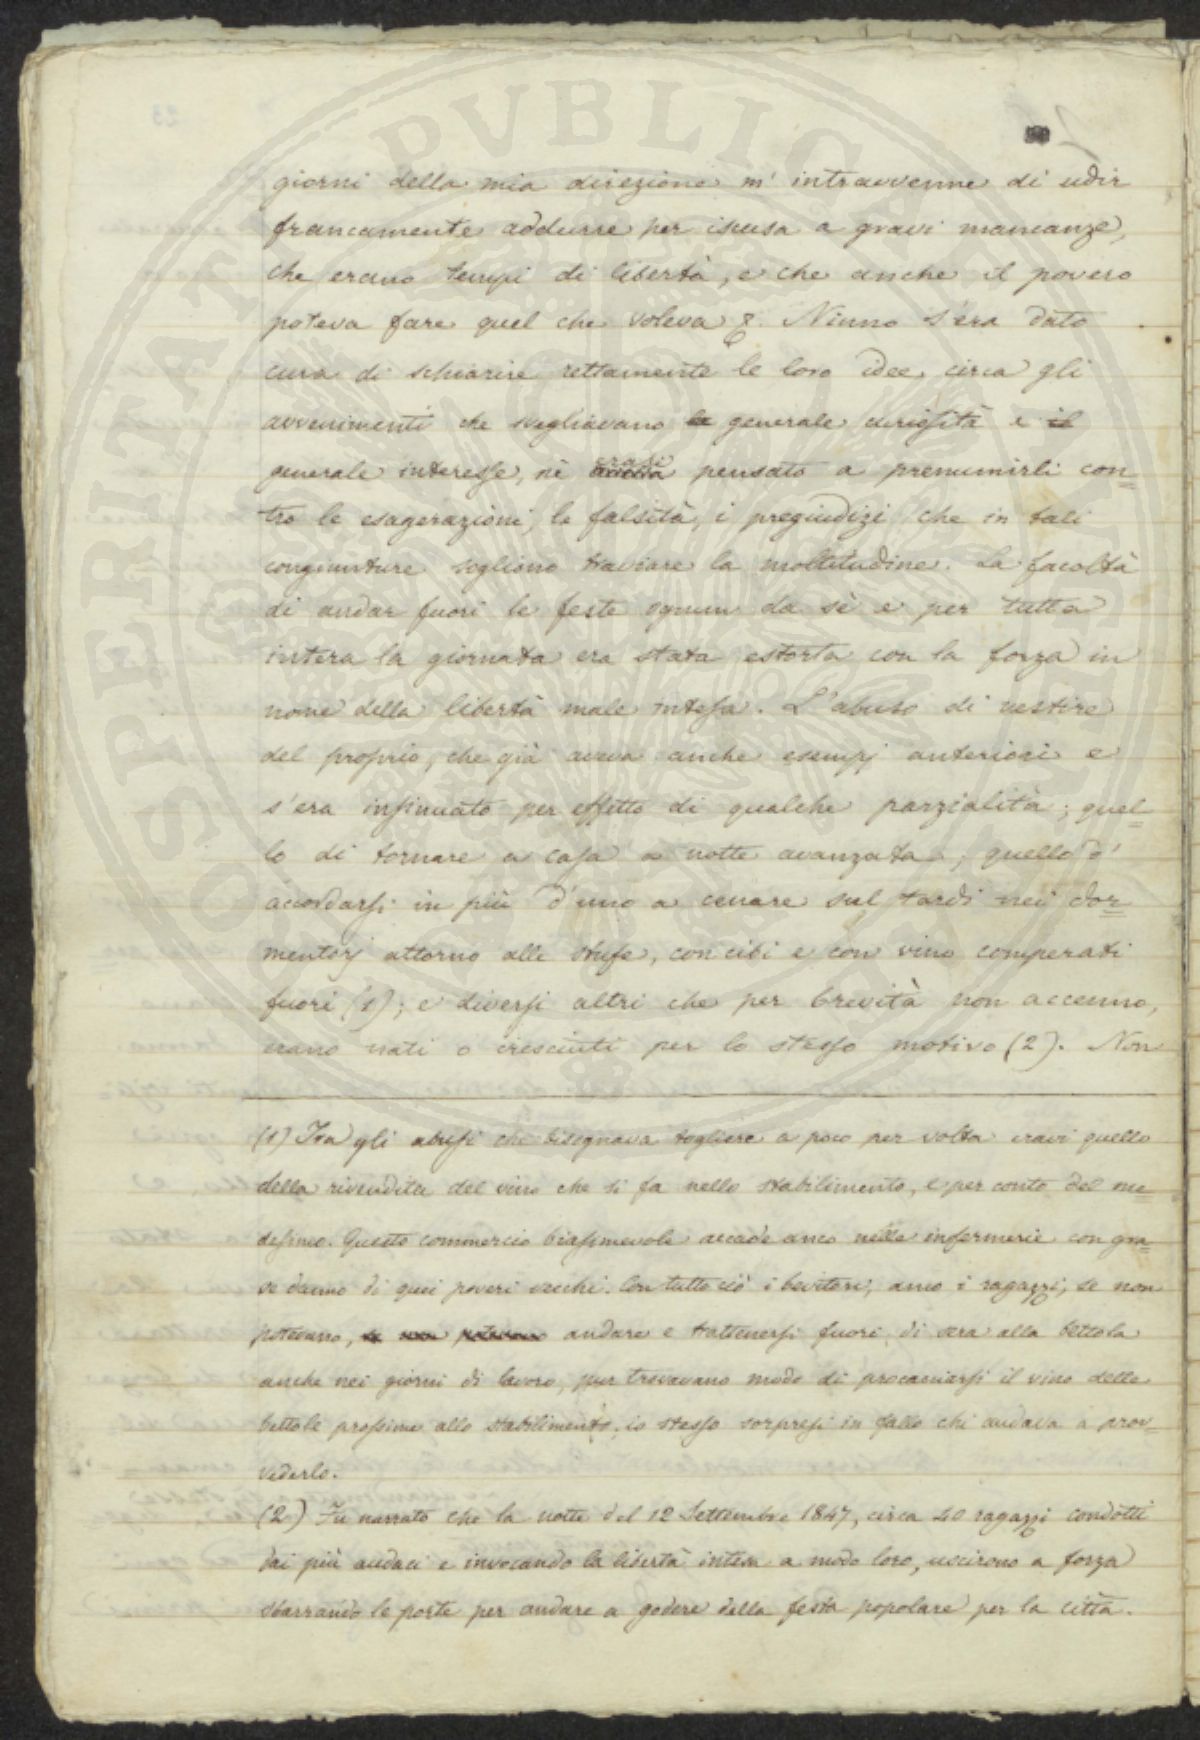 giorni della mia direzione m' intravvenne di udir
francamente addurre per iscusa a gravi mancanze,
che erano tempi di libertà, e che anche il povero
poteva fare quel che voleva &. Niuno s'era dato
cura di schiarire rettamente le loro idee circa gli
avvenimenti che svegliavano la generale curiosità e il
generale interesse, nè erasi pensato a premunirli con=
tro le esagerazioni, le falsità, i pregiudizi che in tali
congiunture sogliono traviare la moltitudine. La facoltà
di andar fuori le feste ognun da sè e per tutta
intera la giornata era stata estorta con la forza in
nome della libertà male intesa. L'abuso di vestire
del proprio, che già aveva anche esempj anteriori e
s'era insinuato per effetto di qualche parzialità; quel=
lo di tornare a casa a notte avanzata; quello d'
accordarsi in più d'uno a cenare sul tardi nei dor=
mentorj attorno alle stufe, con cibi e con vino comperati
fuori (1); e diversi altri che per brevità non accenno,
erano nati o cresciuti per lo stesso motivo (2). Non
(1) Fra gli abusi che bisognava togliere a poco per volta eravi quello
della rivendita del vino che si fa nello stabilimento, e per conto del me=
desimo. Questo commercio biasimevole accade anco nelle infermerie con gra=
ve danno di quei poveri vecchi. Con tutto ciò i bevitori, anco i ragazzi, se non
potevano, se non potevano andare e trattenersi fuori di sera alla bettola
anche nei giorni di lavoro, pur trovavano modo di procacciarsi il vino delle
bettole prossime allo stabilimento; io stesso sorpresi in fallo chi andava a prov=
vederlo.
(2) Fu narrato che la notte del 12 Settembre 1847, circa 40 ragazzi condotti
dai più audaci e invocando la libertà intesa a modo loro, uscirono a forza
sbarrando le porte per andare a godere della festa popolare per la città.
SOSPERITATI PVBLICAE